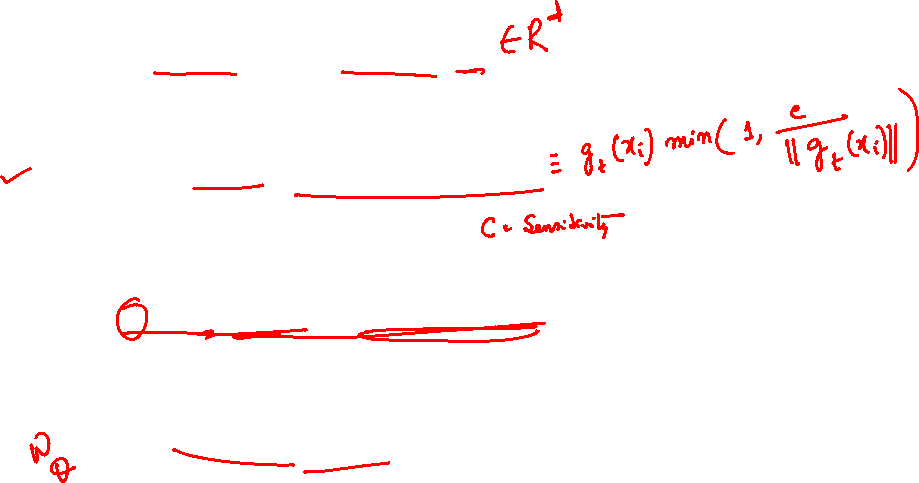 ∈ R^d
≡ g_t(x_i) min(1, c / ||g_t(x_i)||)
C = Sensitivity